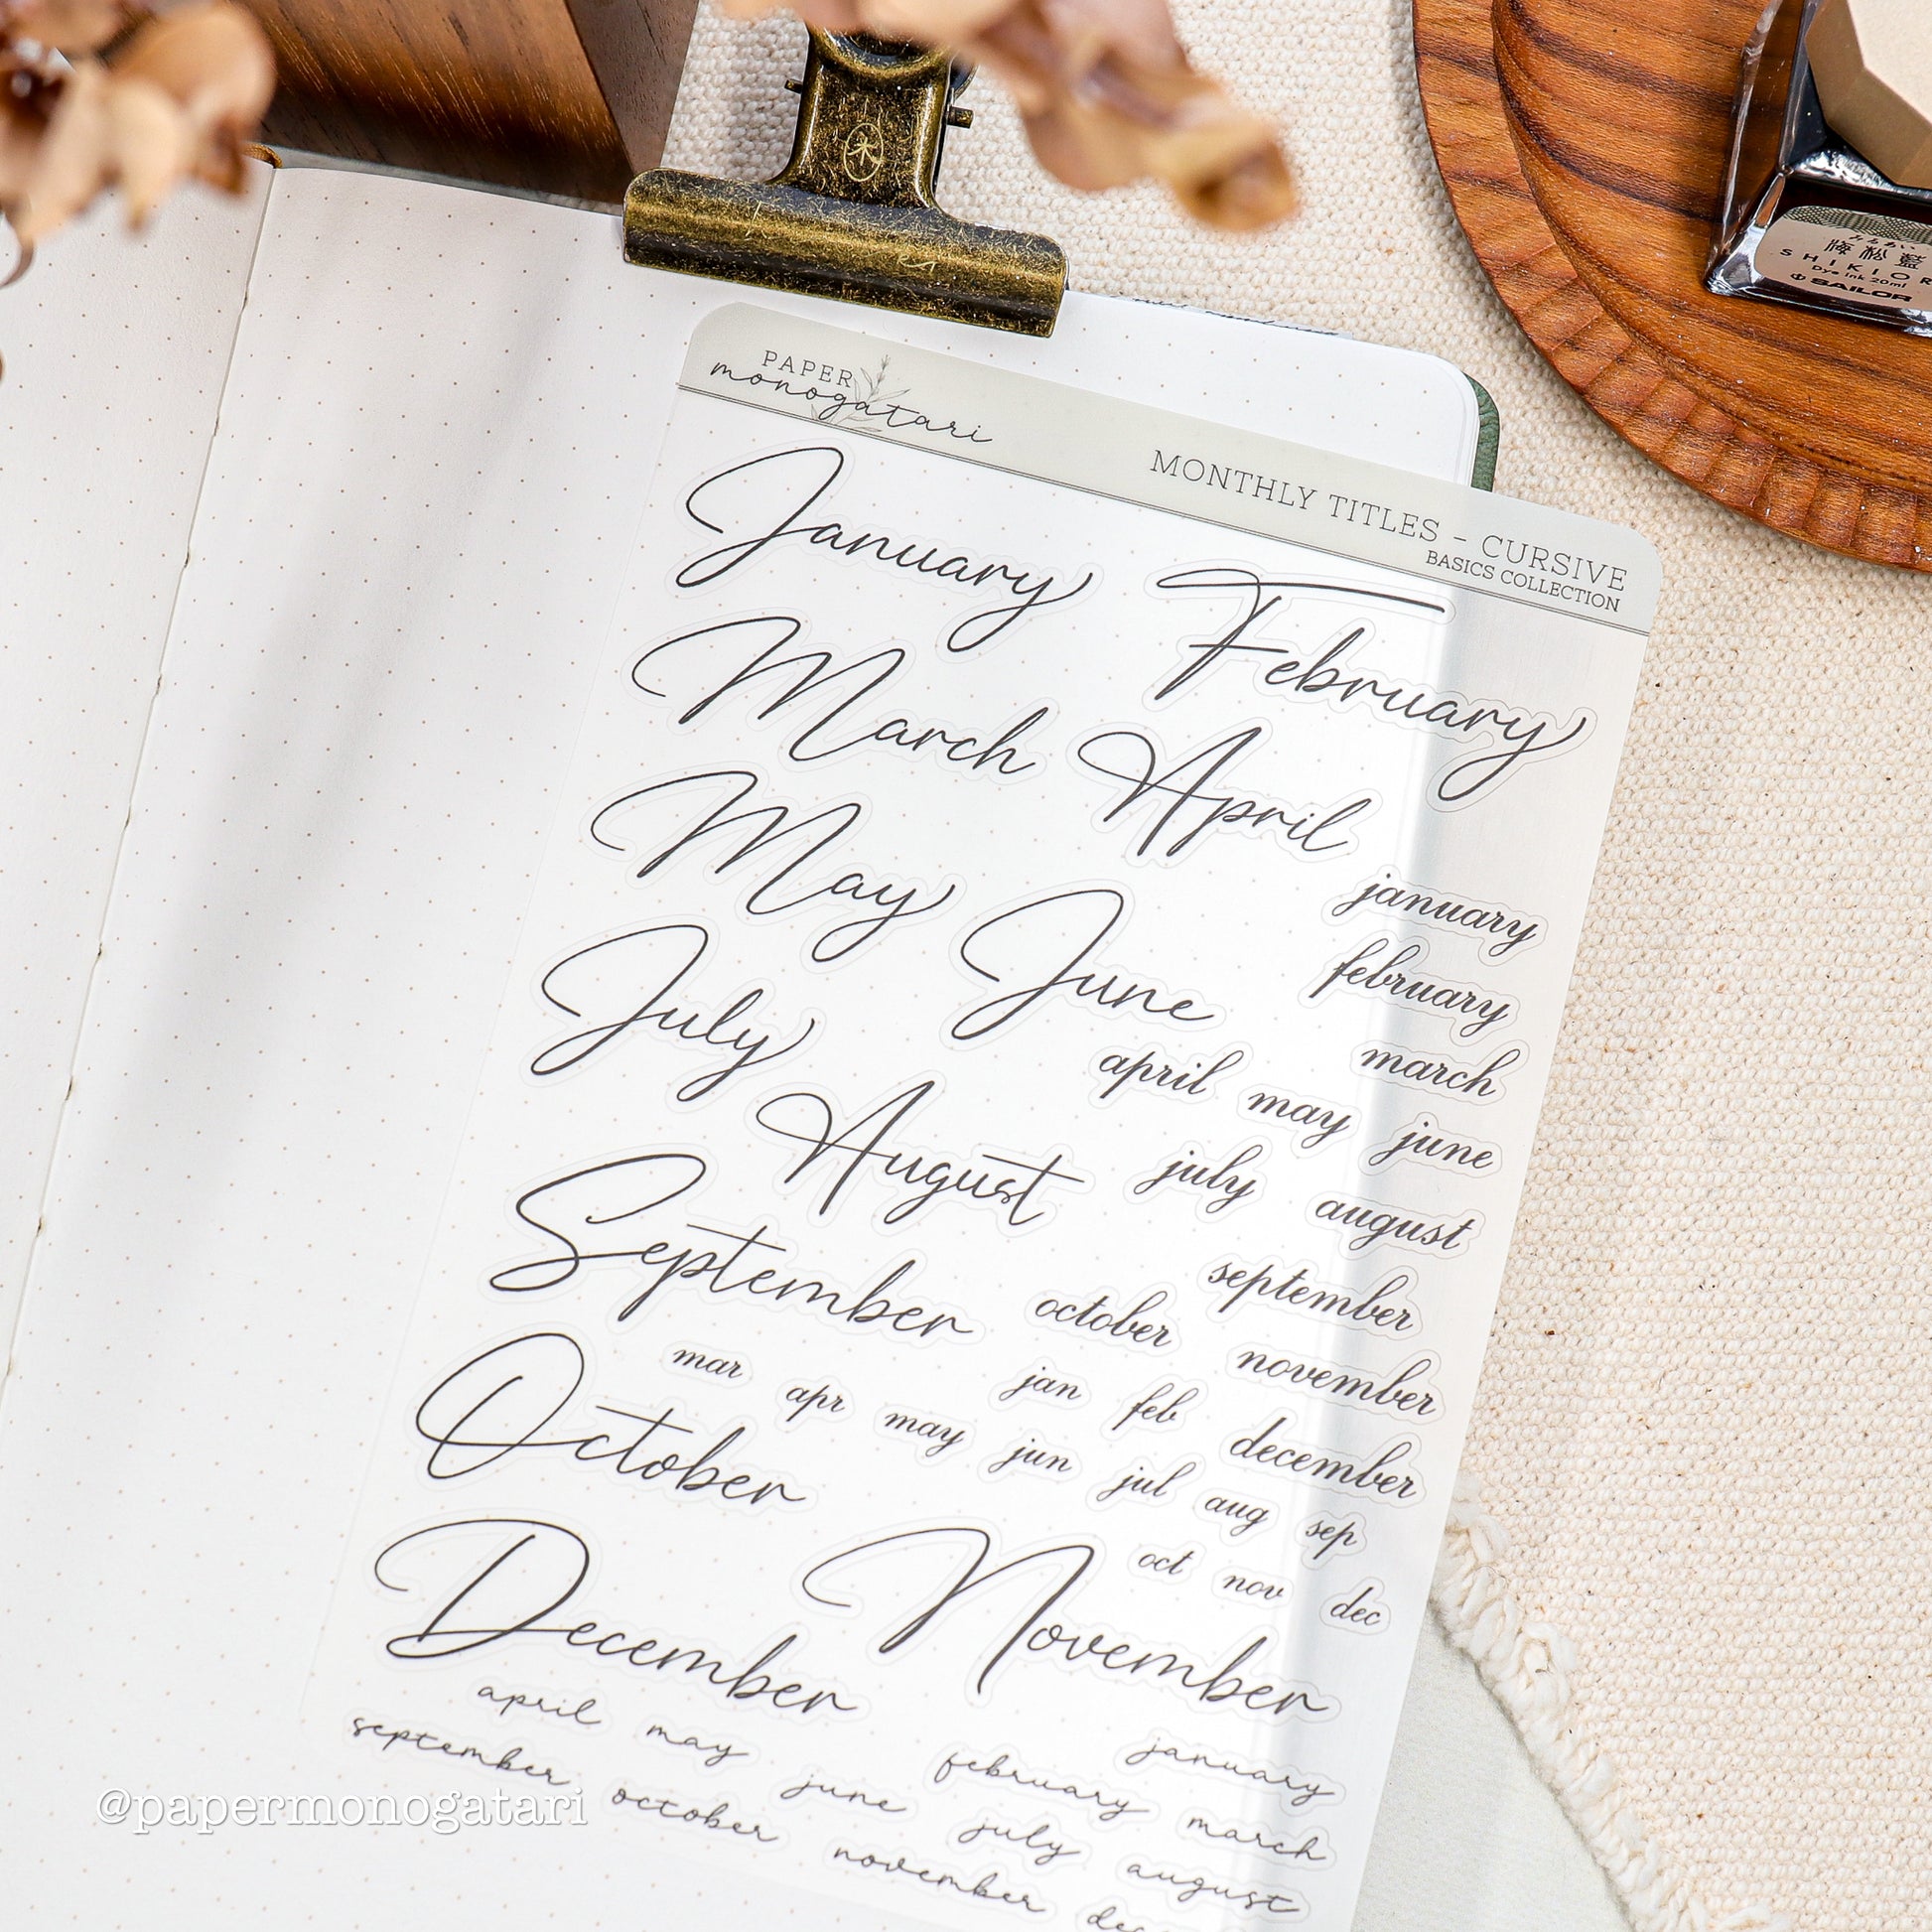 PAPER
monogatari
MONTHLY TITLES - CURSIVE
BASICS COLLECTION
January
February
March
April
May
June
July
August
September
October
December
November
january
february
march
april may june
july august
september
october
november
december
jan feb
mar apr may jun jul aug sep
oct nov dec
january
february march
april may june july august
september october november
@papermonogatari
海松藍
SAILOR
Dye ink 20ml